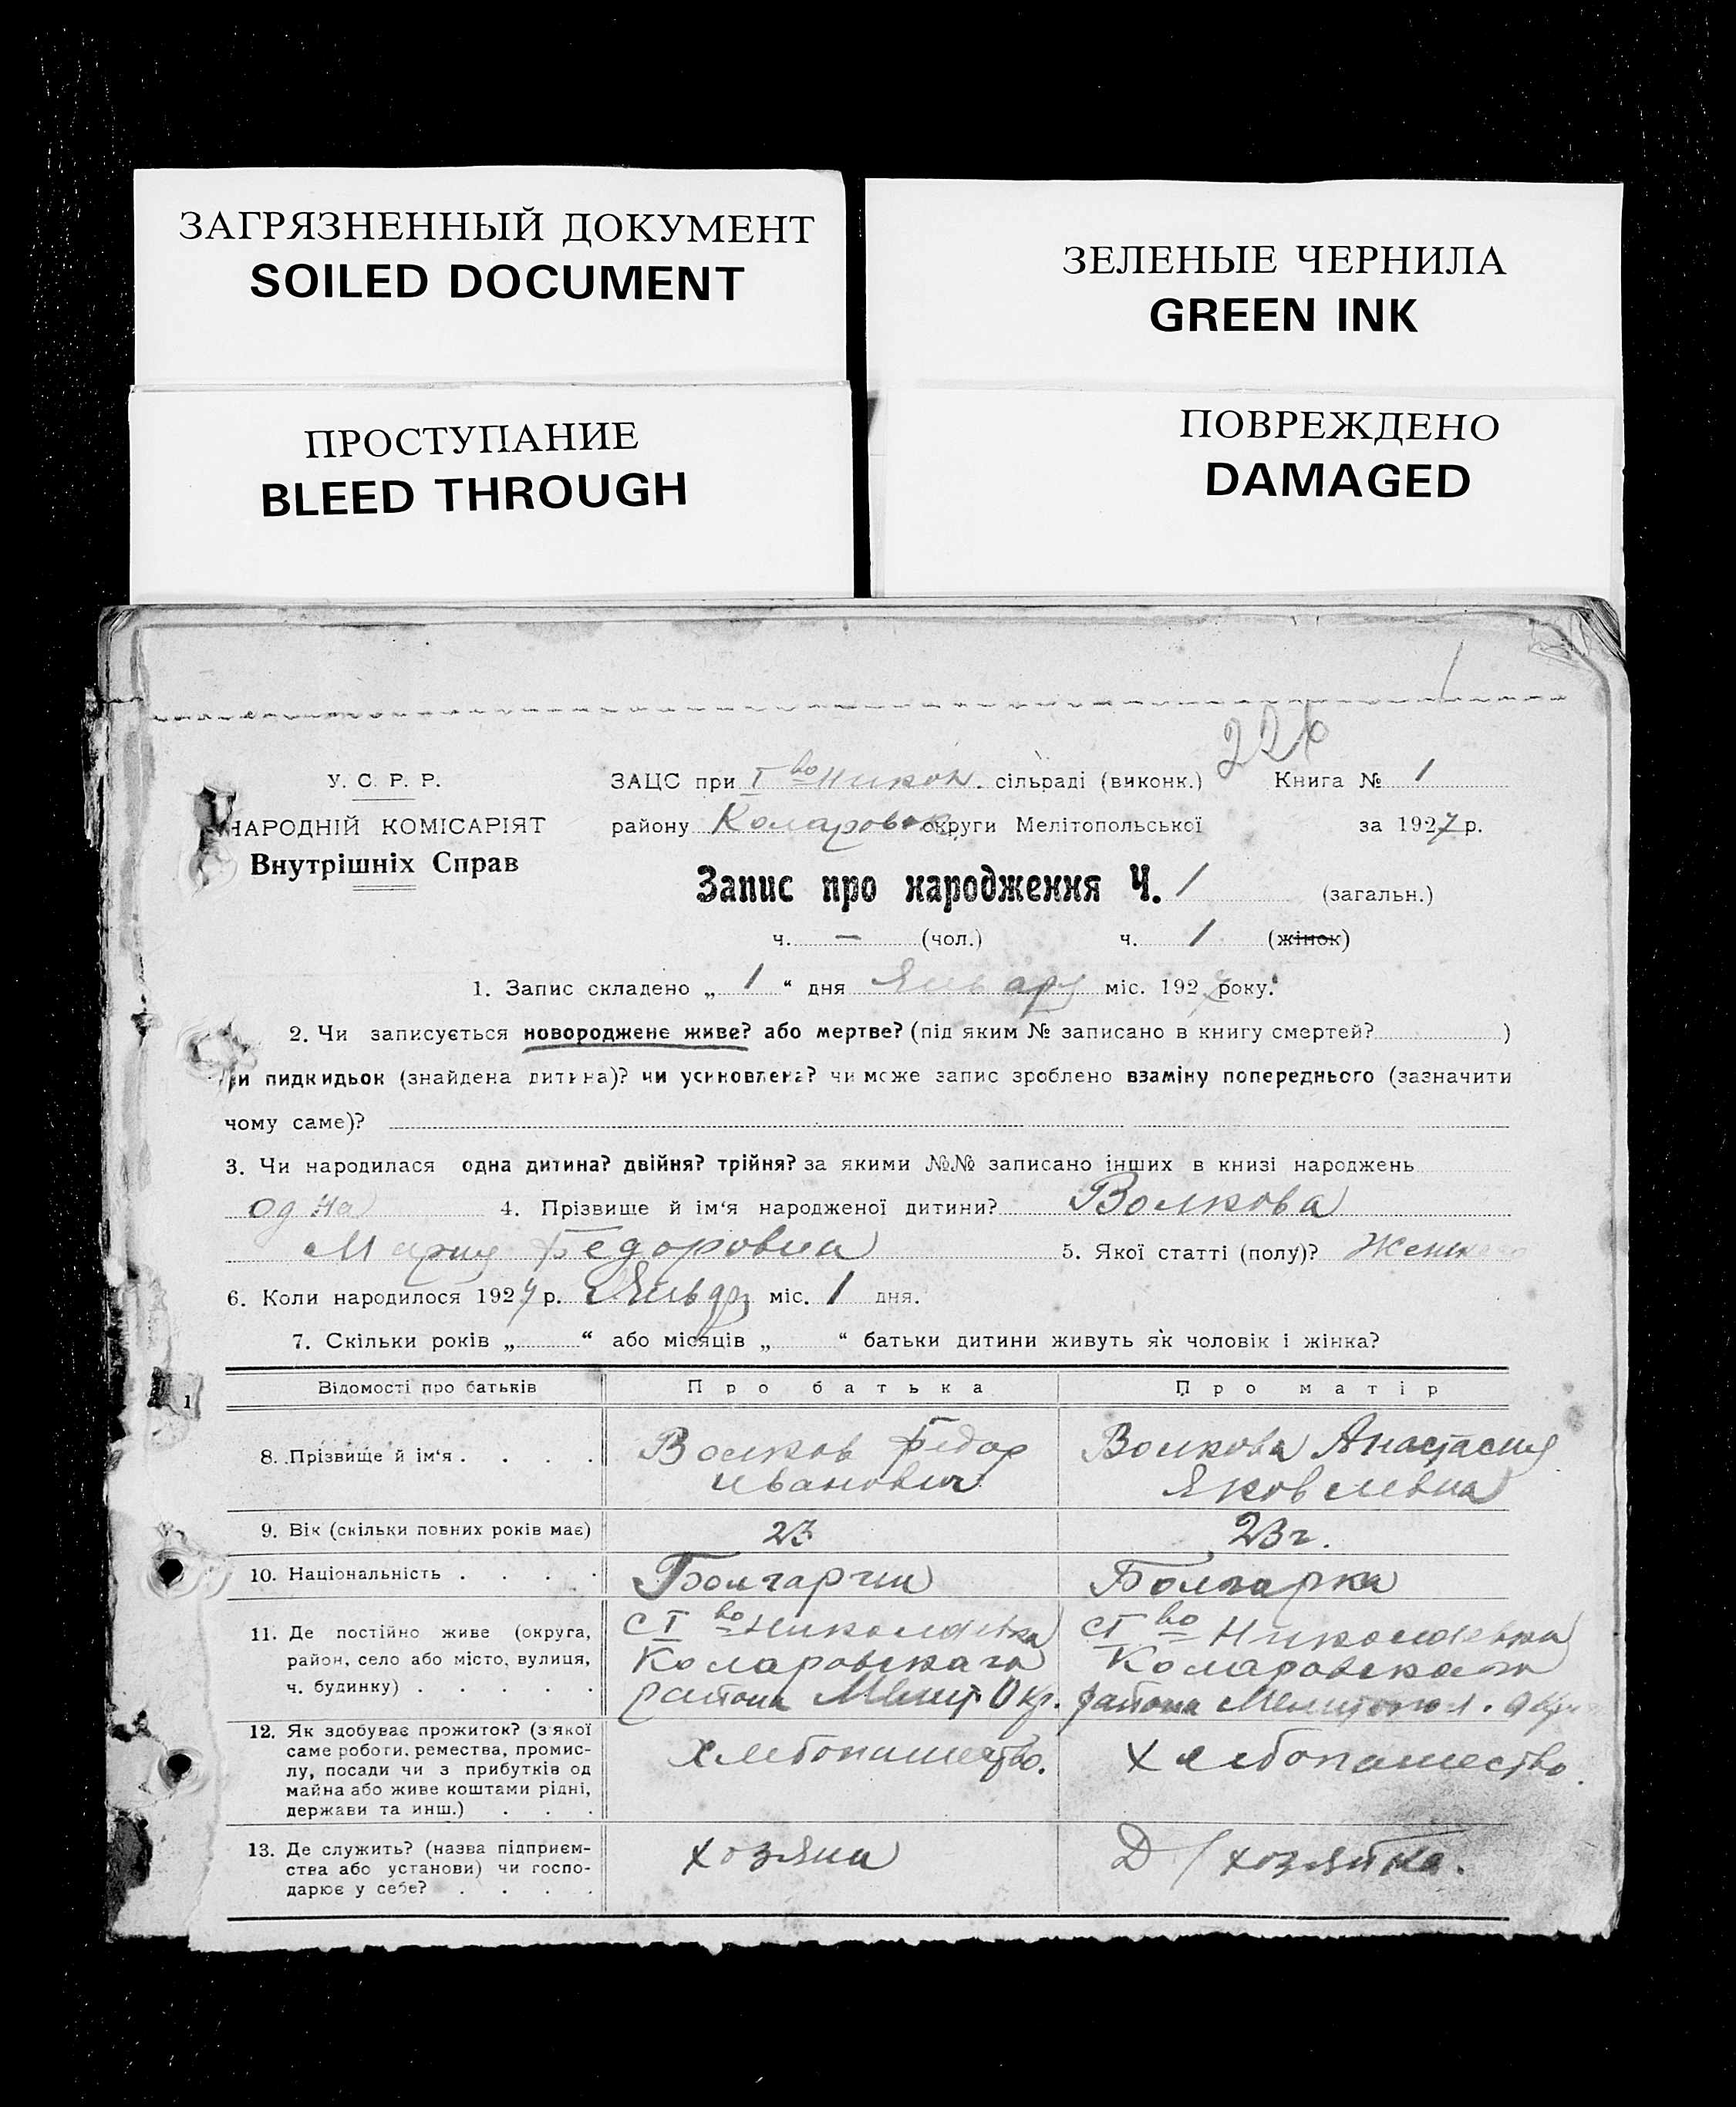 ЗАГРЯЗНЕННЫЙ ДОКУМЕНТ
SOILED DOCUMENT
ЗЕЛЕНЫЕ ЧЕРНИЛА
GREEN INK
ПРОСТУПАНИЕ
BLEED THROUGH
ПОВРЕЖДЕНО
DAMAGED
У. С. Р. Р.
НАРОДНІЙ КОМІСАРІЯТ
Внутрішніх Справ
226
ЗАЦС при I во Никол. сільраді (виконк.) Книга № 1
району Коларовск. округи Мелітопольської за 1927 р.
Запис про народження Ч. 1 (загальн.)
ч. — (чол.) ч. 1 (жінок)
1. Запис складено „ 1 “ дня Январу міс. 1927 року.
2. Чи записується новороджене живе? або мертве? (під яким № записано в книгу смертей? )
чи пидкидьок (знайдена дитина)? чи усиновлена? чи може запис зроблено взаміну попереднього (зазначити
чому саме)?
3. Чи народилася одна дитина? двійня? трійня? за якими №№ записано інших в книзі народжень
одна 4. Прізвище й ім‘я народженої дитини? Волкова
Мария Федоровна 5. Якої статті (полу)? Женск
6. Коли народилося 1927 р. Январ міс. 1 дня.
7. Скільки років „ “ або місяців „ “ батьки дитини живуть як чоловік і жінка?
Відомості про батьків Про батька Про матір
8. Прізвище й ім‘я . . . . Волков Федор Волкова Анастасия
Иванович Яковлевна
9. Вік (скільки повних років має) 23 23 г.
10. Національність . . . . Болгарин Болгарка
11. Де постійно живе (округа, с I во Николаевка с I во Николаевка
район, село або місто, вулиця, Коларовскаго Коларовскаго
ч. будинку) . . . . . района Мелит Окр. района Мелитопол. Окр.
12. Як здобуває прожиток? (з якої
саме роботи, ремества, промис-
лу, посади чи з прибутків од хлебопашество. хлебопашество.
майна або живе коштами рідні,
держави та инш.) . . .
13. Де служить? (назва підприєм-
ства або установи) чи госпо- хозяин Д/хозяйка.
дарює у себе? . . . .